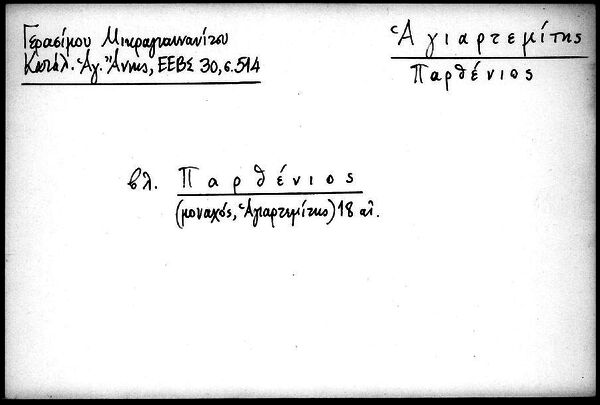 Γερασίμου Μικραγιαννανίτου
Κατάλ. Ἁγ. Ἄννης, ΕΕΒΣ 30, σ. 514
Ἁγιαρτεμίτης
Παρθένιος
βλ. Παρθένιος
(μοναχός, Ἁγιαρτεμίτης) 18 αἰ.